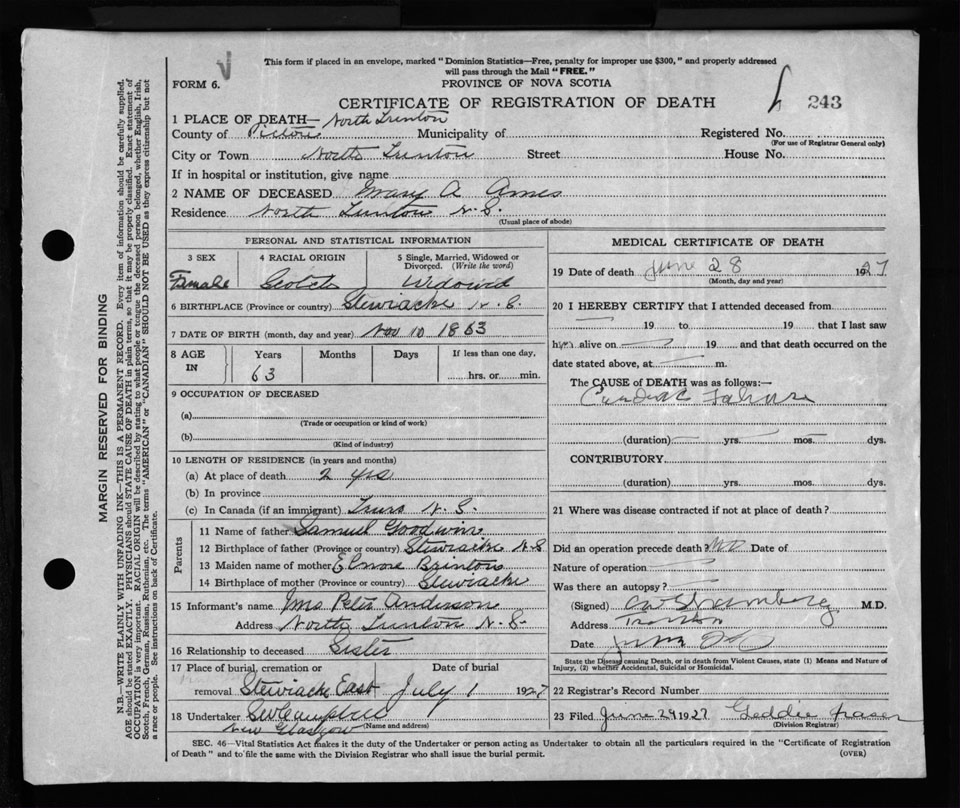 This form if placed in an envelope, marked "Dominion Statistics—Free, penalty for improper use $300," and properly addressed
will pass through the Mail "FREE."
FORM 6.
PROVINCE OF NOVA SCOTIA
CERTIFICATE OF REGISTRATION OF DEATH
243
1 PLACE OF DEATH— North Trenton
County of Pictou Municipality of Registered No.
(For use of Registrar General only)
City or Town North Trenton Street House No.
If in hospital or institution, give name
2 NAME OF DECEASED Mary A Ames
Residence North Trenton N.S.
(Usual place of abode)
PERSONAL AND STATISTICAL INFORMATION
3 SEX 4 RACIAL ORIGIN 5 Single, Married, Widowed or
Divorced. (Write the word)
Female Scotch Widowed
6 BIRTHPLACE (Province or country) Stewiacke N.S.
7 DATE OF BIRTH (month, day and year) Nov 10 1863
8 AGE IN Years Months Days If less than one day,
63 hrs. or min.
9 OCCUPATION OF DECEASED
(a)
(Trade or occupation or kind of work)
(b)
(Kind of industry)
10 LENGTH OF RESIDENCE (in years and months)
(a) At place of death 2 yrs
(b) In province
(c) In Canada (if an immigrant) Truro N.S.
Parents
11 Name of father Samuel Goodwin
12 Birthplace of father (Province or country) Stewiacke N.S
13 Maiden name of mother Brintons
14 Birthplace of mother (Province or country) Stewiacke
15 Informant's name Mrs Peter Anderson
Address North Trenton N.S.
16 Relationship to deceased Sister
17 Place of burial, cremation or Date of burial
removal Stewiacke East July 1 1927
18 Undertaker
New Glasgow (Name and address)
MEDICAL CERTIFICATE OF DEATH
19 Date of death June 28 1927
(Month, day and year)
20 I HEREBY CERTIFY that I attended deceased from
19 to 19 that I last saw
h alive on 19 and that death occurred on the
date stated above, at m.
The CAUSE of DEATH was as follows:—
Cardiac Failure
(duration) yrs. mos. dys.
CONTRIBUTORY
(duration) yrs. mos. dys.
21 Where was disease contracted if not at place of death?
Did an operation precede death No Date of
Nature of operation
Was there an autopsy?
(Signed) M.D.
Address Trenton
Date
State the Disease causing Death, or in death from Violent Causes, state (1) Means and Nature of
Injury, (2) whether Accidental, Suicidal or Homicidal.
22 Registrar's Record Number
23 Filed June 29 1927 Geddie Fraser
(Division Registrar)
SEC. 46—Vital Statistics Act makes it the duty of the Undertaker or person acting as Undertaker to obtain all the particulars required in the "Certificate of Registration
of Death" and to file the same with the Division Registrar who shall issue the burial permit. (OVER)
MARGIN RESERVED FOR BINDING
N.B.—WRITE PLAINLY WITH UNFADING INK—THIS IS A PERMANENT RECORD. Every item of information should be carefully supplied.
AGE should be stated EXACTLY. PHYSICIANS should STATE CAUSE OF DEATH in plain terms, so that it may be properly classified. Exact statement of
OCCUPATION is very important. RACIAL ORIGIN will be described by stating to what people or tongue the deceased person belonged, whether English, Irish,
Scotch, French, German, Russian, Ruthenian, etc. The terms "AMERICAN" or "CANADIAN" SHOULD NOT BE USED as they express citizenship but not
a race or people. See instructions on back of Certificate.